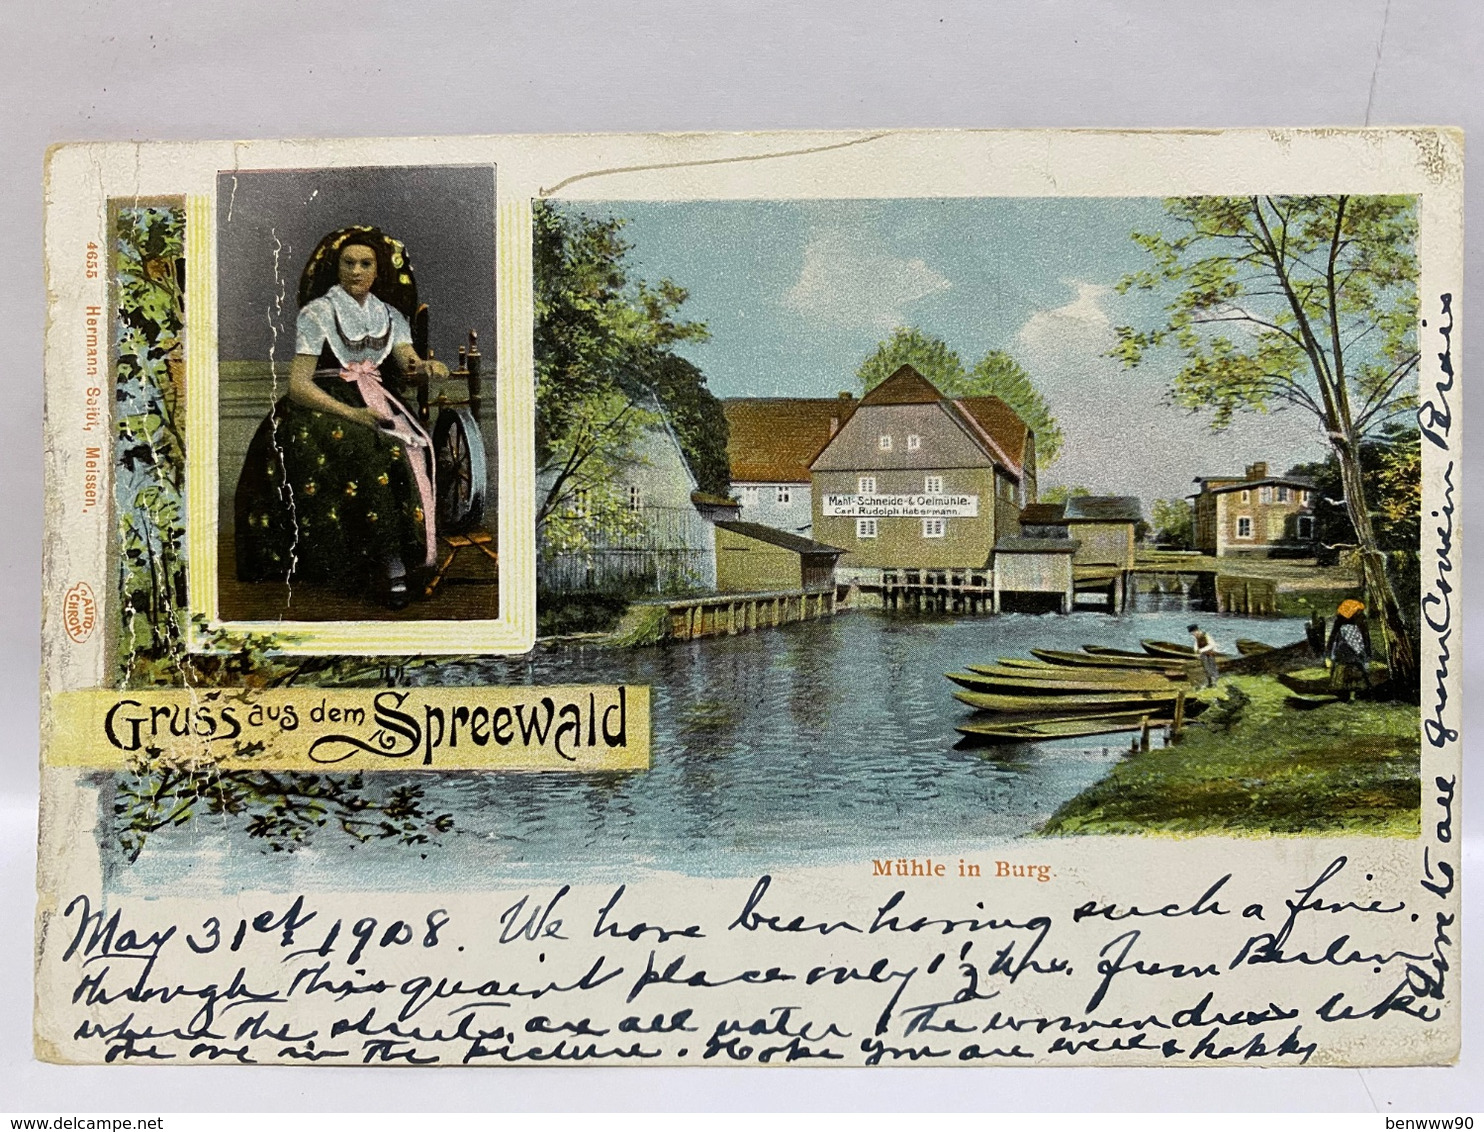 4655 Hermann Seibt, Meissen.
AUTO-
CHROM
Mahl- Schneide- & Oelmühle.
Carl Rudolph Habermann.
Gruss aus dem Spreewald
Mühle in Burg.
May 31st 1908. We have been having such a fine
through this quaint place only 1½ hrs. from Berlin
where the streets are all water & the women dress like
the one in the picture. Hope you are well & happy
Love to all from Cousin
benwww90